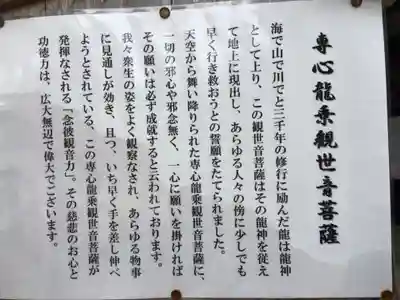 専心龍乗觀世音菩薩
海で山で川でと三千年の修行に励んだ龍は龍神
として上り、この観世音菩薩はその龍神を従え
て地上に現出し、あらゆる人々の傍に少しでも
早く行き救おうとの誓願をたてられました。
天空から舞い降りられた専心龍乗観世音菩薩に、
一切の邪心や邪念無く、一心に願いを掛ければ
その願いは必ず成就すると云われております。
我々衆生の姿をよく観察なされ、あらゆる物事
に見通しが効き、且つ、いち早く手を差し伸べ
ようとされている、この専心龍乗観世音菩薩が
発揮なされる「念彼観音力」。その慈悲のお心と
功徳力は、広大無辺で偉大でございます。